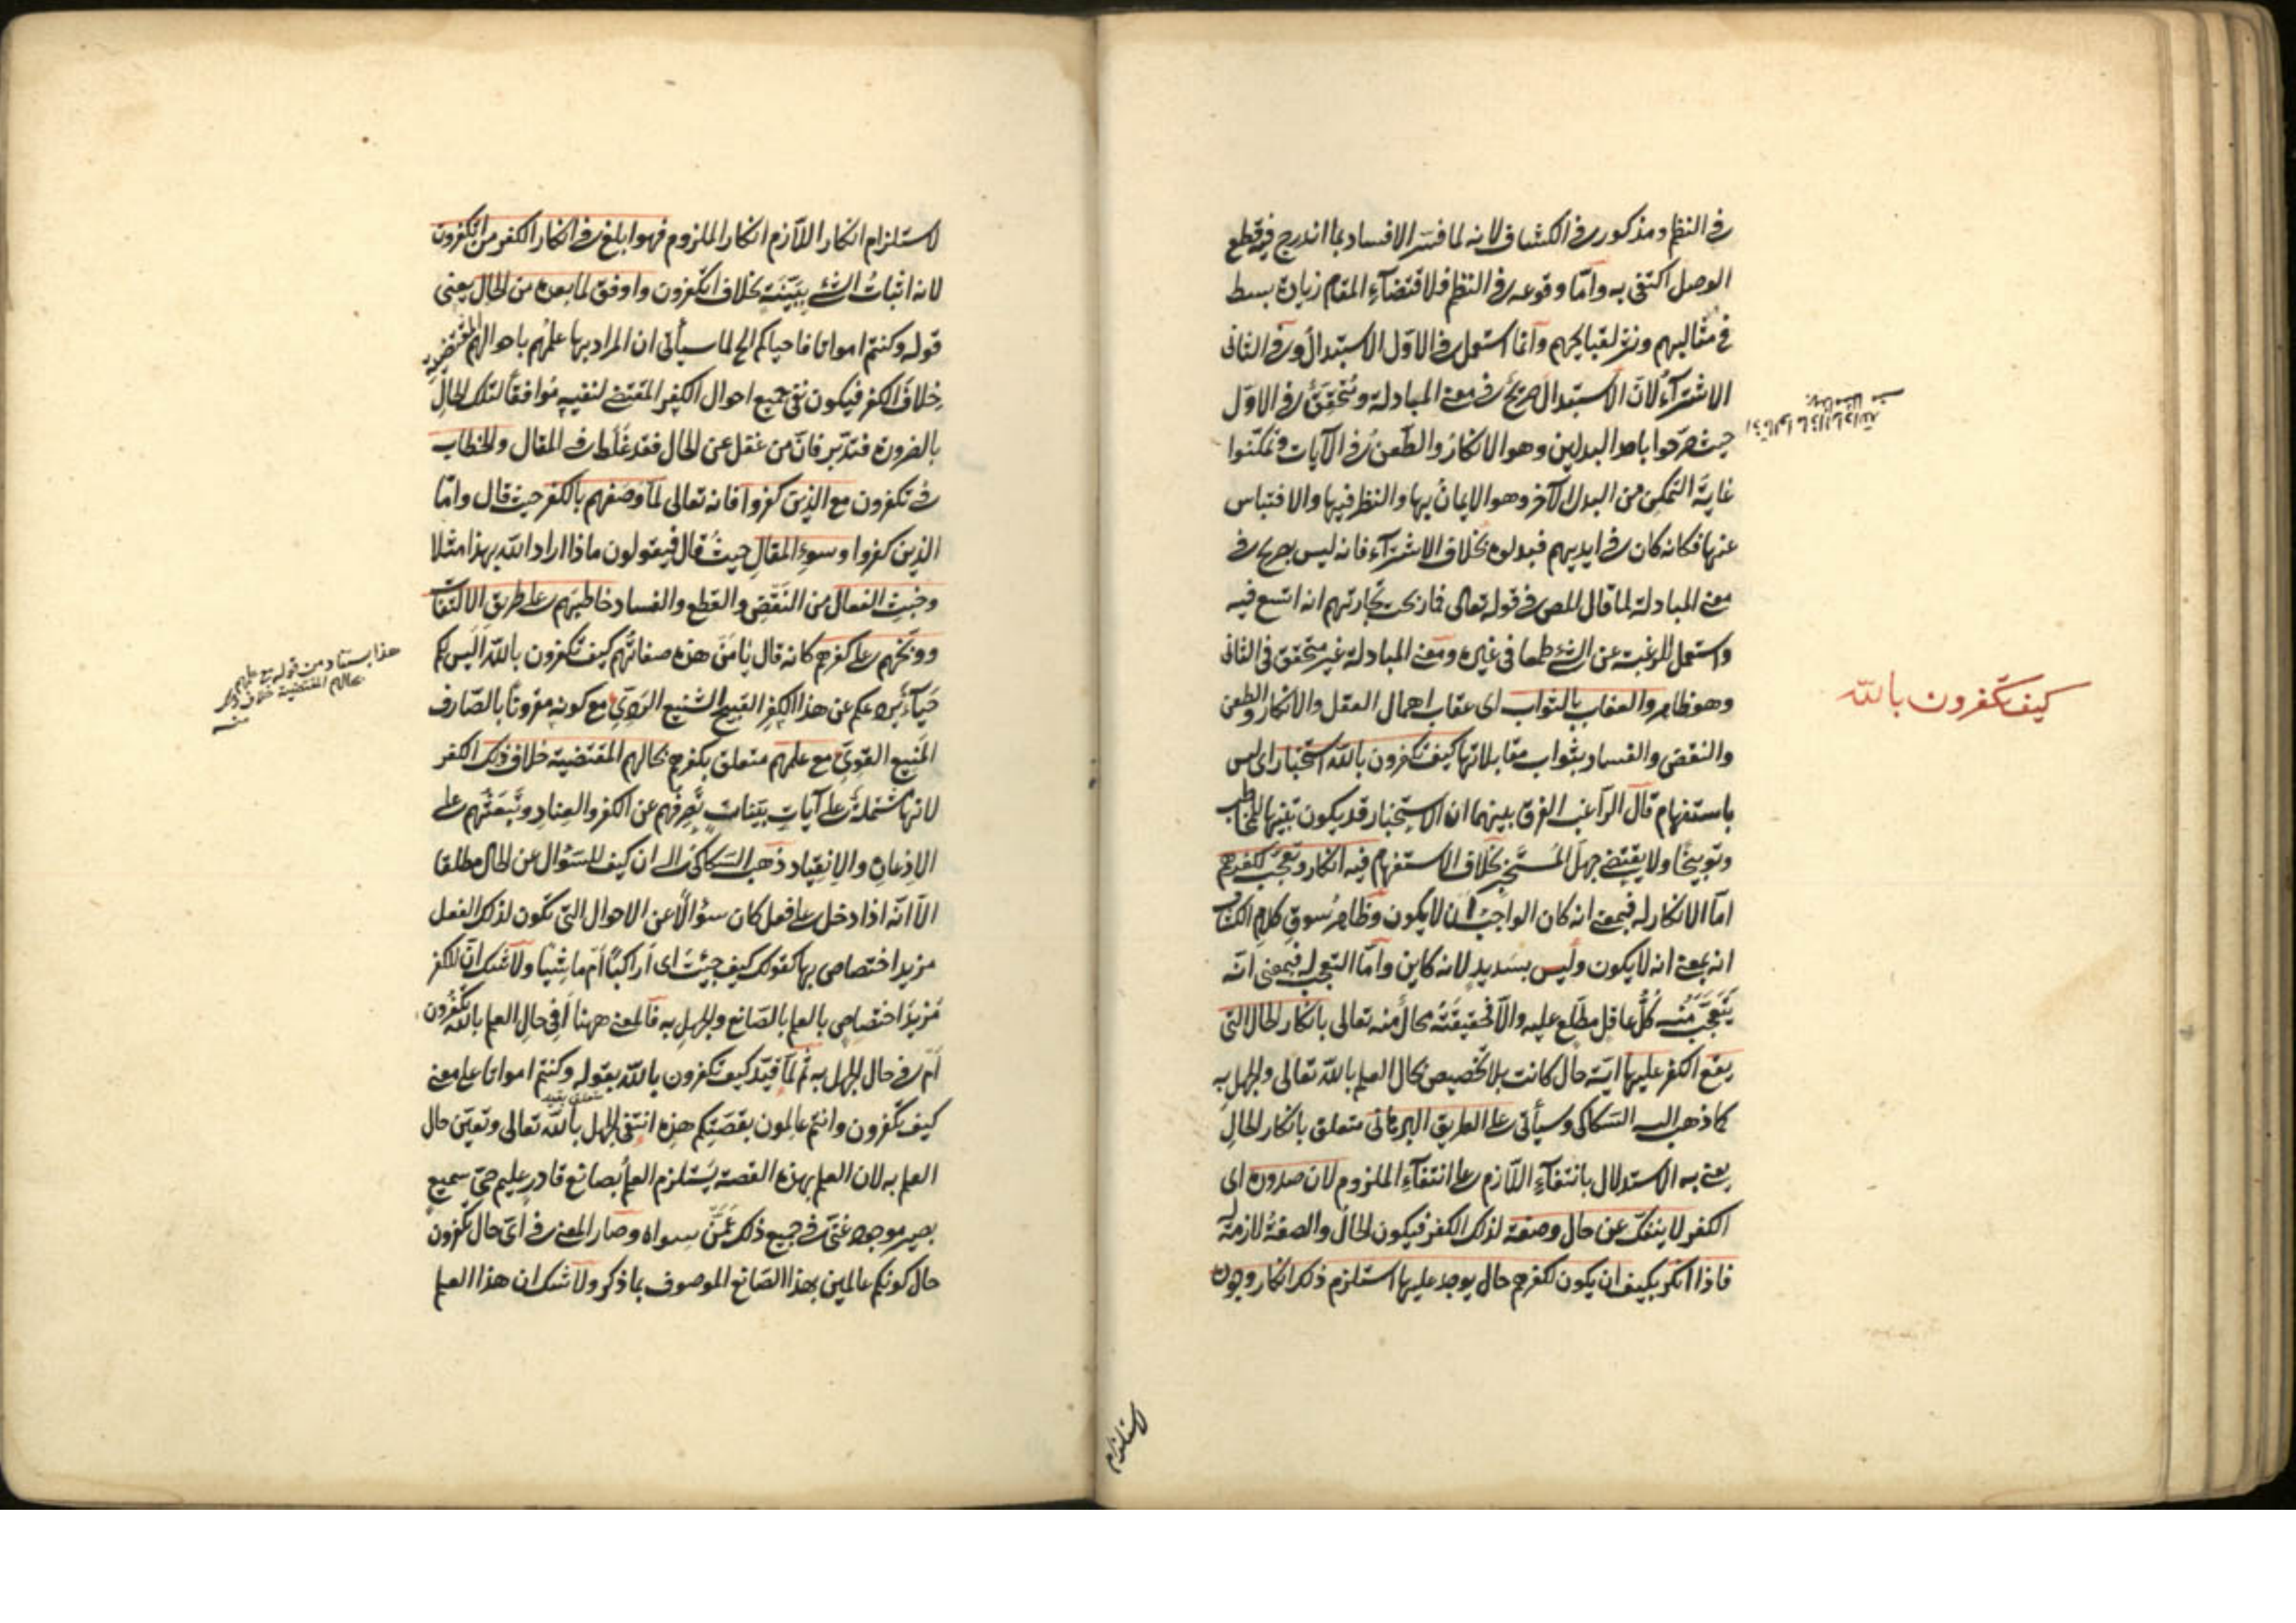 في النظم ومذكور في الكشاف لانه لما فسر الافساد بما اندرج فيه قطع
الوصل اكتفى به واما وقوعه في النظم فلاقتضآء المقام زيادة بسط
في مثالبهم ونشر لقبايحهم وانما استعمل في الاول الاستبدال وفي الثاني
الاشترآء لان الاستبدال صريح في معنى المبادلة ومتحقق في الاول
حيث صرحوا باحد البدلين وهو الانكار والطعن في الآيات وتمكنوا
غاية التمكن من البدل الآخر وهو الايمان بها والنظر فيها والاقتباس
عنها فكانه كان في ايديهم فبدلوه بخلاف الاشترآء فانه ليس بصريح في
معنى المبادلة لما قال المص في قوله تعالى فما ربحت تجارتهم انه اتسع فيه
واستعمل للرغبة عن الشئ طمعا في غيره ومعنى المبادلة غير متحقق في الثاني
وهو ظاهر والعقاب بالثواب اى عقاب اهمال العقل والانكار والطعن
والنقض والفساد بثواب مقابلاتها كيف تكفرون بالله استخبار اى ليس
باستفهام قال الراغب الفرق بينهما ان الاستخبار قد يكون تنبيها للمخاطب
وتوبيخا ولا يقتضى جهل المستخبر بخلاف الاستفهام فيه انكار وتعجب لكفرهم
اما الانكار له فبمعنى انه كان الواجب ان لا يكون وظاهر سوق كلام الكشاف
انه بمعنى انه لا يكون وليس بسديد لانه كاين واما التعجب له فبمعنى انه
يتعجب منه كل عاقل مطلع عليه والا فحقيقته محال منه تعالى بانكار الحال التى
يقع الكفر عليها اية حال كانت بلا تخصيص بحال العلم بالله تعالى والجهل به
كما ذهب اليه السكاكى وسيأتى على الطريق البرهانى متعلق بانكار الحال
يعنى به الاستدلال بانتفآء اللازم على انتفآء الملزوم لان صدوره اى
الكفر لا ينفك عن حال وصفة لذلك الكفر فيكون الحال والصفة لازمة له
فاذا انكر بكيف ان يكون لكفرهم حال يوجد عليها استلزم ذلك انكار وجوده
كيف تكفرون بالله
لاستلزام
لاستلزام انكار اللازم انكار الملزوم فهو ابلغ في انكار الكفر من اتكفرون
لانه اثبات الشئ ببينة بخلاف اتكفرون واوفق لما بعده من الحال يعنى
قوله وكنتم امواتا فاحياكم الخ لما سيأتى ان المراد بها علمهم باحوالهم المقتضية
خلاف الكفر فيكون نفى جميع احوال الكفر المقتضى لنفيه موافقا لتلك الحال
بالضرورة فتدبر فان من غفل عن الحال فقد غلط في المقال والخطاب
في تكفرون مع الذين كفروا فانه تعالى لما وصفهم بالكفر حيث قال واما
الذين كفروا وسوء المقال حيث قال فيقولون ماذا اراد الله بهذا مثلا
وخبث الفعال من النقض والقطع والفساد خاطبهم على طريق الالتفات
ووبخهم على كفرهم كانه قال يا من هذه صفاتهم كيف تكفرون بالله اليس لكم
حيآء يردعكم عن هذا الكفر القبيح الشنيع الردئ مع كونه مقرونا بالصارف
المنيع القوى مع علمهم متعلق بكفرهم بحالهم المقتضية خلاف ذلك الكفر
لانها مشتملة على آيات بينات تصرفهم عن الكفر والعناد وتبعثهم على
الاذعان والانقياد ذهب السكاكى الى ان كيف للسؤال عن الحال مطلقا
الا انه اذا دخل على فعل كان سؤالا عن الاحوال التى تكون لذلك الفعل
مزيد اختصاص بها كقولك كيف جيئت اى أراكبا أم ماشيا ولا شك ان للكفر
مزيد اختصاص بالعلم بالصانع والجهل به فالمعنى ههنا أفى حال العلم بالله تكفرون
أم في حال الجهل به ثم لما قيد كيف تكفرون بالله بقوله وكنتم امواتا على معنى
متعلق بقيد
كيف تكفرون وانتم عالمون بقصتكم هذه انتفى الجهل بالله تعالى وتعين حال
العلم به لان العلم بهذه القصة يستلزم العلم بصانع قادر عليم حى سميع
بصير موجود غنى في جميع ذلك عمن سواه وصار المعنى في اى حال تكفرون
حال كونكم عالمين بهذا الصانع الموصوف بما ذكر ولا شك ان هذا العلم
هذا يستفاد من قوله مع علمهم
بحالهم المقتضية خلاف ذلك
منه